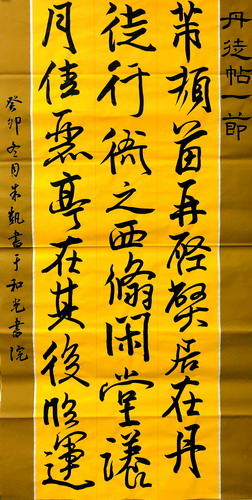 丹徒帖一節
芾頓首再啓弊居在丹
徒行衙之西翛閑堂漾
月佳麗亭在其後臨運
癸卯冬月朱書于和光書院